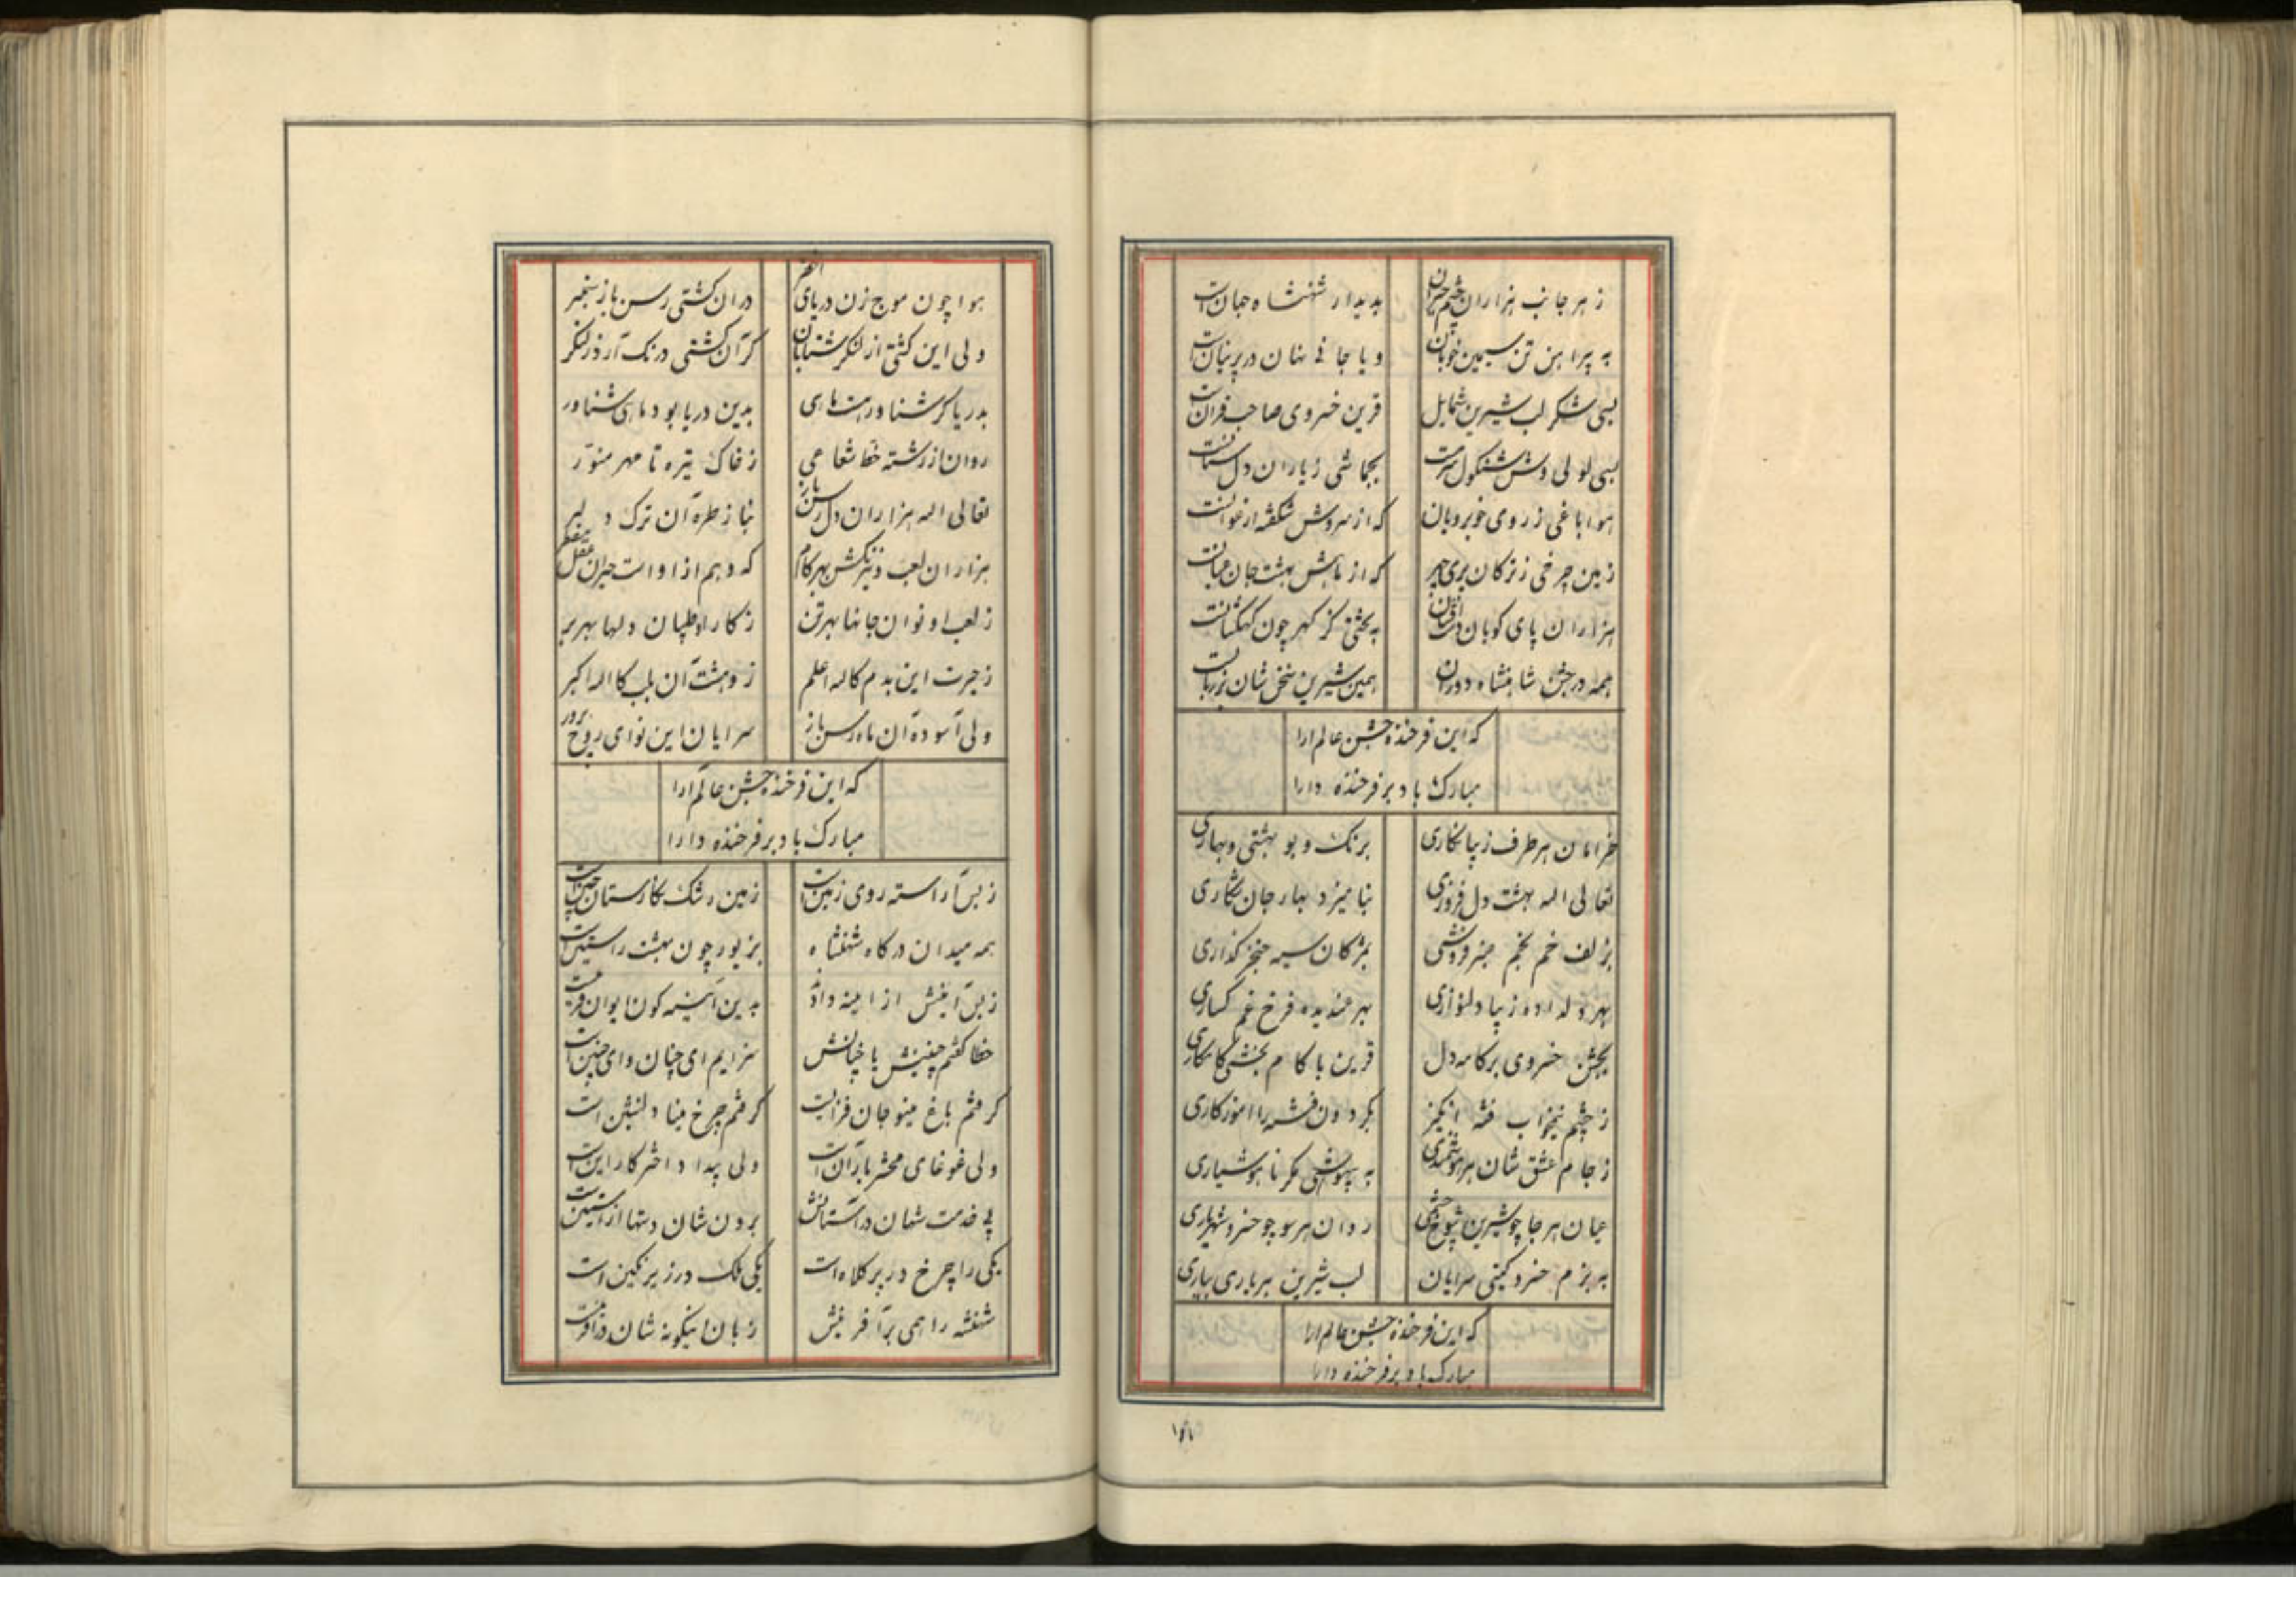 ز هر جانب هزاران چشم حیران بدیدار شهنشاه جهانست
به پیراهن تن سیمین خوبان و یا جانی نهان در پرنیانست
بسی شکر لب شیرین شمایل قرین خسروی صاحب قرانست
بسی لولی وش شنکول سرمست بجماشی ز یاران دل ستانست
هوا باغی ز روی خوبرویان که از سروش شکفته ارغوانست
زمین چرخی ز ترکان پری چهر که از ماهش بهشت جان عیانست
هزاران پای کوبان دست افشان به بختی کز کهر چون کهکشانست
همه در جشن شاهنشاه دوران همین شیرین سخن شان بر زبانست
که این فرخنده جشن عالم ارا
مبارک باد بر فرخنده دارا
خرامان هر طرف زیبا نکاری برنک و بو بهشتی و بهاری
تعالی الله بهشت دل فروزی بنامیزد بهار جان شکاری
بزلف خم بخم عنبر فروشی بمژکان سیه خنجر کذاری
بهر زیبا دلنوازی بهر فرخ غم کساری
بجشن خسروی بر کامه دل قرین با کام بخشی کامکاری
ز چشم نیخواب فتنه انکیز بکردون فتنه را اموزکاری
ز جام عشق شان هر هوشمندی به بیهوشی مکر ناهوشیاری
عیان هر جا چو شیرین شوخ چشمی روان هر سو چو خسرو شهریاری
به بزم خسرو کیتی سرایان لب شیرین هر یاری بیاری
که این فرخنده جشن عالم ارا
مبارک باد بر فرخنده دارا
هوا چون موج زن دریای اخضر در ان کشتی رسن باز
ولی این کشتی از لنکر شتابان کر آن کشتی درنک آرد ز لنکر
بدریا کر شناورهست ماهی بدین دریا بود ماهی شناور
روان از رشته خط شعاعی ز خاک تیره تا مهر منور
تعالی الله هزاران دل رسن باز بنازد طره آن ترک دلبر
هزاران لعب و نیرنکش بهر کام که وهم از او است حیران عقل مضطر
ز لعب او نوان جانها بهر تن ز کار او طپان دلها بهر بر
ز حیرت این بدم کالله اعلم ز وحشت آن بلب کالله اکبر
ولی آسوده آن ماه رسن باز سرایان این نوای روح پرور
که این فرخنده جشن عالم آرا
مبارک باد بر فرخنده دارا
ز بس آراسته روی زمین است زمین رشک نکارستان چین است
همه میدان درکاه شهنشاه بزیور چون بهشت راستین است
ز بس آذینش از آیینه دادند بدین آیینه کون ایوان قرینست
خطا کفتم چنینش یا چنانش سزایم ای چنان و ای چنین است
کرفتم باغ مینو جان فزایست کرفتم چرخ مینا دلنشین است
ولی غوغای محشر بار آن است ولی بیداد اختر کار این است
پی خدمت شهان در آستانش برون شان دستها از آستین است
یکی را چرخ در پر کلاه است یکی ملک در زیر نکین است
شهنشه را همی بر آفرینش زبان اینکونه شان در آفرینست